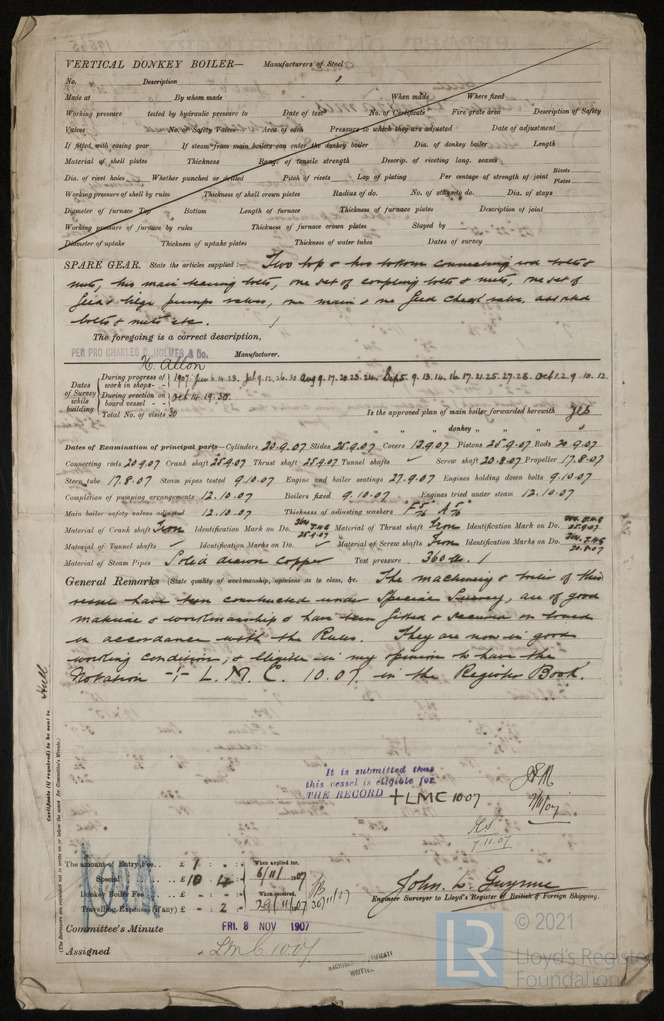 VERTICAL DONKEY BOILER— Manufacturers of Steel
No. Description
Made at By whom made When made Where fixed
Working pressure tested by hydraulic pressure to Date of test No. of Certificate Fire grate area Description of Safety
Valves No. of Safety Valves Area of each Pressure to which they are adjusted Date of adjustment
If fitted with easing gear If steam from main boilers can enter the donkey boiler Dia. of donkey boiler Length
Material of shell plates Thickness Range of tensile strength Descrip. of riveting long. seams
Dia. of rivet holes Whether punched or drilled Pitch of rivets Lap of plating Per centage of strength of joint Rivets Plates
Working pressure of shell by rules Thickness of shell crown plates Radius of do. No. of stays to do. Dia. of stays
Diameter of furnace Top Bottom Length of furnace Thickness of furnace plates Description of joint
Working pressure of furnace by rules Thickness of furnace crown plates Stayed by
Diameter of uptake Thickness of uptake plates Thickness of water tubes Dates of survey
SPARE GEAR. State the articles supplied:— Two top & two bottom connecting rod bolts &
nuts, two main bearing bolts, one set of coupling bolts & nuts, one set of
feed & bilge pumps valves, one main & one feed check valve, assorted
bolts & nuts etc.
The foregoing is a correct description,
PER PRO CHARLES D. HOLMES & Co. Manufacturer.
H. Allon
Dates of Survey while building
During progress of work in shops- - 1907. Jun 6.14.28. Jul 9.12.26.30 Aug 9.17.20.23.24. Sep 5.9.13.14.16.17.21.25.27.28. Oct 1.2.9.10.12.
During erection on board vessel - - Oct 14.19.30.
Total No. of visits 30 Is the approved plan of main boiler forwarded herewith Yes
" " " donkey " " "
Dates of Examination of principal parts—Cylinders 20.9.07 Slides 25.9.07 Covers 12.9.07 Pistons 25.9.07 Rods 20.9.07
Connecting rods 20.9.07 Crank shaft 25.9.07 Thrust shaft 25.9.07 Tunnel shafts Screw shaft 20.8.07 Propeller 17.8.07
Stern tube 17.8.07 Steam pipes tested 9.10.07 Engine and boiler seatings 27.9.07 Engines holding down bolts 9.10.07
Completion of pumping arrangements 12.10.07 Boilers fixed 9.10.07 Engines tried under steam 12.10.07
Main boiler safety valves adjusted 12.10.07 Thickness of adjusting washers
Material of Crank shaft Iron Identification Mark on Do. 25.9.07 Material of Thrust shaft Iron Identification Mark on Do. 25.9.07
Material of Tunnel shafts Identification Marks on Do. Material of Screw shafts Iron Identification Marks on Do. 20.8.07
Material of Steam Pipes Solid drawn copper Test pressure 360 lb.
General Remarks (State quality of workmanship, opinions as to class, &c. The machinery & boiler of this
vessel have been constructed under Special Survey, are of good
material & workmanship & have been fitted & secured on board
in accordance with the Rules. They are now in good
working condition, & eligible in my opinion to have the
Notation + L.M.C. 10.07. in the Register Book.
Certificate (if required) to be sent to Hull
(The Surveyors are requested not to write on or below the space for Committee's Minute.)
It is submitted that
this vessel is eligible for
THE RECORD +LMC 10.07
7/11/07
7.11.07
The amount of Entry Fee.. £ 1 : - : When applied for,
Special £ 10 : 4 : 6/11/1907
Donkey Boiler Fee £ : : When received,
Travelling Expenses (if any) £ - : 2 : 29/11/07 30/11/07
John L. Gwynne
Engineer Surveyor to Lloyd's Register of British & Foreign Shipping.
Committee's Minute FRI. 8 NOV 1907
Assigned + LMC 10.07
MACHINERY CERTIFICATE
WRITTEN
LR
© 2021
Lloyd's Register
Foundation